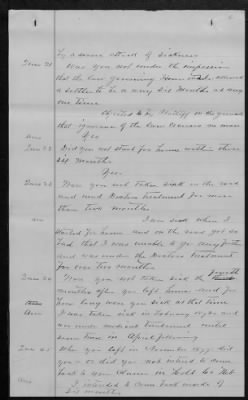 by a severe attack of sickness
Ques 21 Was you not under the impression
that the law governing Homesteads allowed
a settler to be away six months at any
one time
Objected to by Plaintiff on the ground
that ignorance of the law excuses no man
Ans Yes
Ques 22 Did you not start for home within those
six months
Yes
Ques 23 Was you not taken sick on the road
and under Doctors treatment for more
than two months
Ans I was sick when I
started for home and on the road got so
bad that I was unable to go any further
and was under the Doctors treatment
for over two months
Ques 24 Was you not taken sick the fourth
months after you left home and for
how long were you sick at that time
Ans I was taken sick in February 1878 and
was under medical treatment until
some time in April following
Ques 25 When you left in November 1877 did
you or did you not intend to come
back to your claim in Holt Co Neb
Ans I intended to come back inside of
six months